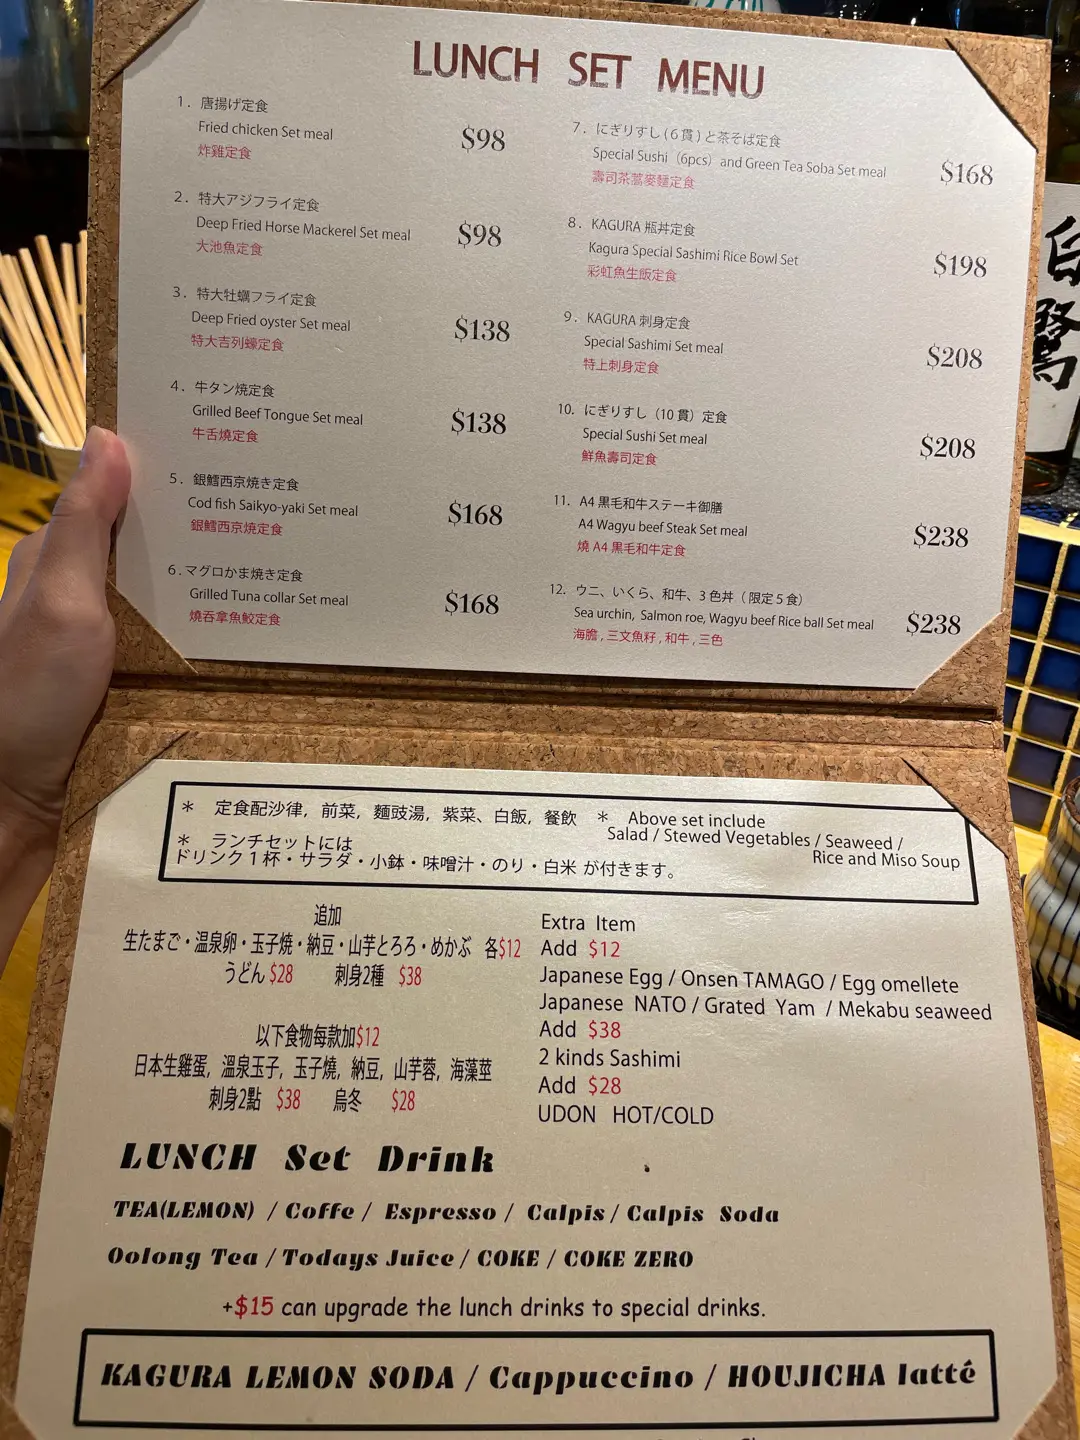 LUNCH SET MENU
1. 唐揚げ定食
Fried chicken Set meal
炸雞定食
$98
2. 特大アジフライ定食
Deep Fried Horse Mackerel Set meal
大池魚定食
$98
3. 特大牡蠣フライ定食
Deep Fried oyster Set meal
特大吉列蠔定食
$138
4. 牛タン焼定食
Grilled Beef Tongue Set meal
牛舌燒定食
$138
5. 銀鱈西京焼き定食
Cod fish Saikyo-yaki Set meal
銀鱈西京燒定食
$168
6. マグロかま焼き定食
Grilled Tuna collar Set meal
燒吞拿魚鮫定食
$168
7. にぎりすし(6貫)と茶そば定食
Special Sushi (6pcs) and Green Tea Soba Set meal
壽司茶蕎麥麵定食
$168
8. KAGURA 瓶丼定食
Kagura Special Sashimi Rice Bowl Set
彩虹魚生飯定食
$198
9. KAGURA 刺身定食
Special Sashimi Set meal
特上刺身定食
$208
10. にぎりすし（10貫）定食
Special Sushi Set meal
鮮魚壽司定食
$208
11. A4黒毛和牛ステーキ御膳
A4 Wagyu beef Steak Set meal
燒A4黒毛和牛定食
$238
12. ウニ、いくら、和牛、3色丼（限定5食）
Sea urchin, Salmon roe, Wagyu beef Rice ball Set meal
海膽, 三文魚籽, 和牛, 三色
$238
＊ 定食配沙律, 前菜, 麵豉湯, 紫菜、白飯, 餐飲
＊ ランチセットには
ドリンク1杯・サラダ・小鉢・味噌汁・のり・白米 が付きます。
＊ Above set include
Salad / Stewed Vegetables / Seaweed /
Rice and Miso Soup
追加
生たまご・温泉卵・玉子焼・納豆・山芋とろろ・めかぶ 各$12
うどん $28 刺身2種 $38
以下食物每款加$12
日本生雞蛋, 溫泉玉子, 玉子燒, 納豆, 山芋蓉, 海藻莖
刺身2點 $38 烏冬 $28
Extra Item
Add $12
Japanese Egg / Onsen TAMAGO / Egg omellete
Japanese NATO / Grated Yam / Mekabu seaweed
Add $38
2 kinds Sashimi
Add $28
UDON HOT/COLD
LUNCH Set Drink
TEA(LEMON) / Coffe / Espresso / Calpis / Calpis Soda
Oolong Tea / Todays Juice / COKE / COKE ZERO
+$15 can upgrade the lunch drinks to special drinks.
KAGURA LEMON SODA / Cappuccino / HOUJICHA latté